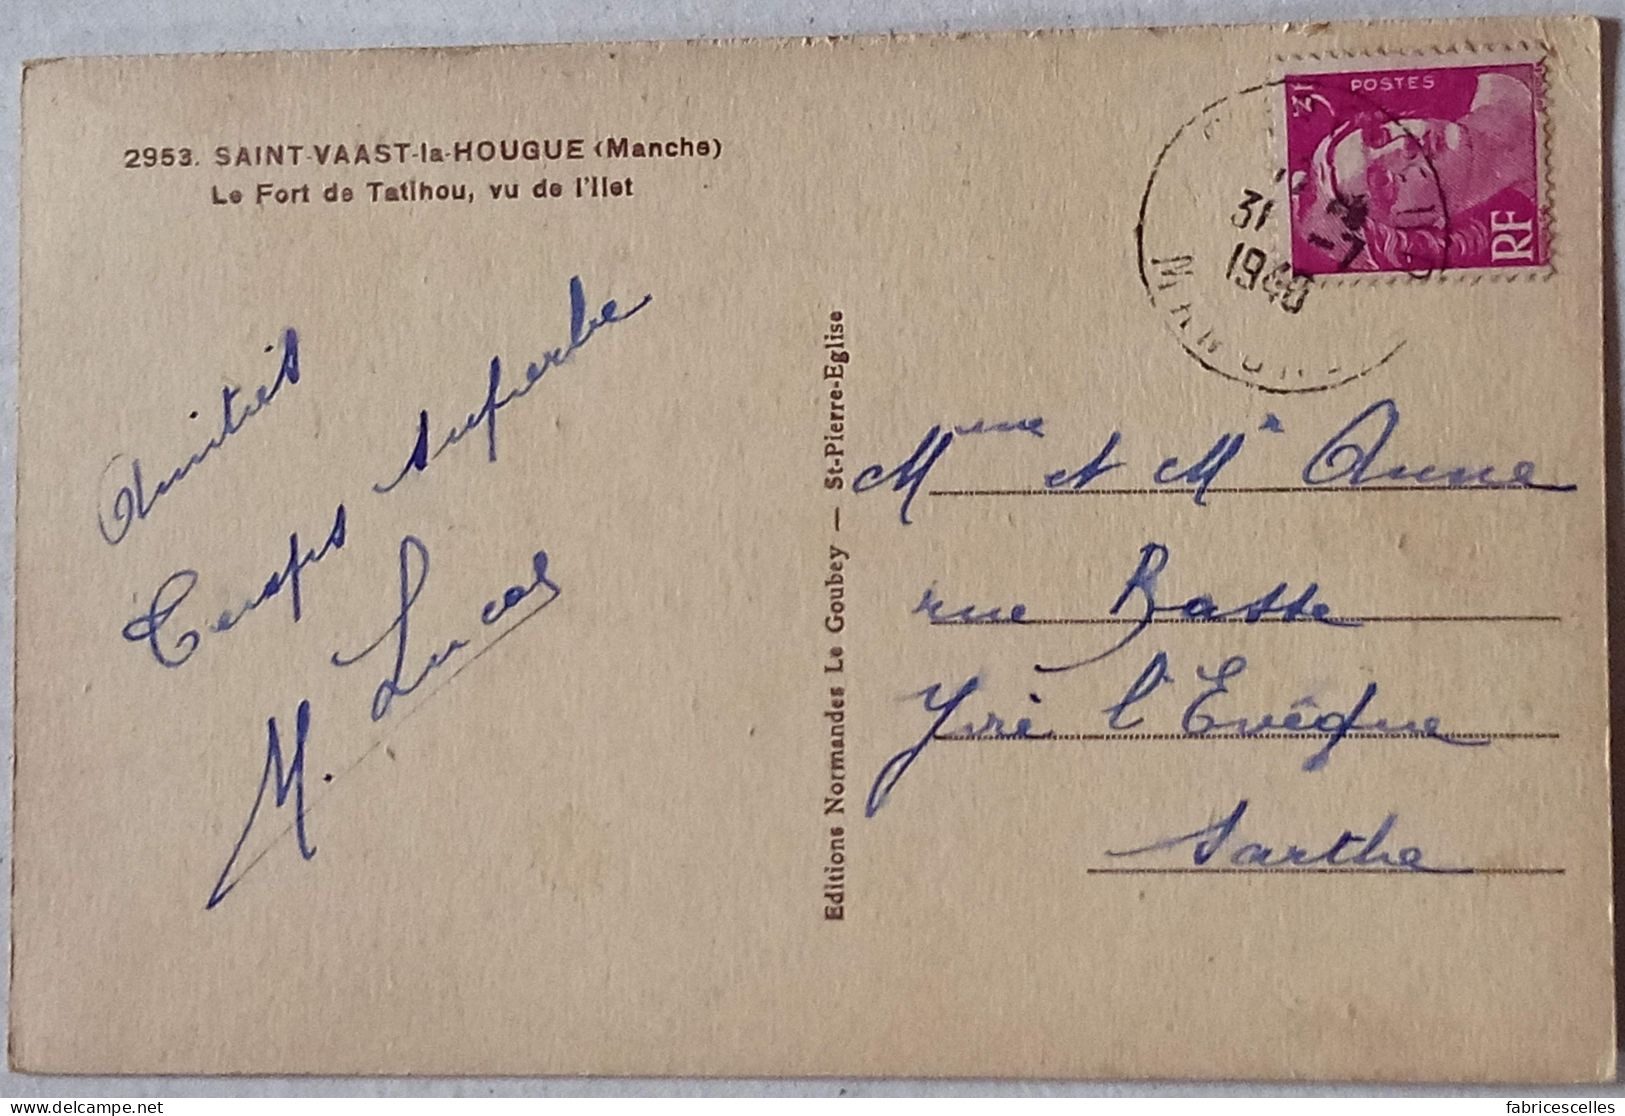 2953. SAINT-VAAST-la-HOUGUE (Manche)
Le Fort de Tatihou, vu de l'Ilet
Amitiés
Temps superbe
M. Lucas
Editions Normandes Le Goubey — St-Pierre-Eglise
POSTES
3F
RF
31 -7
MANCHE
Mme et Mr Anne
rue Basse
Yvré l'Evêque
Sarthe
fabricescelles